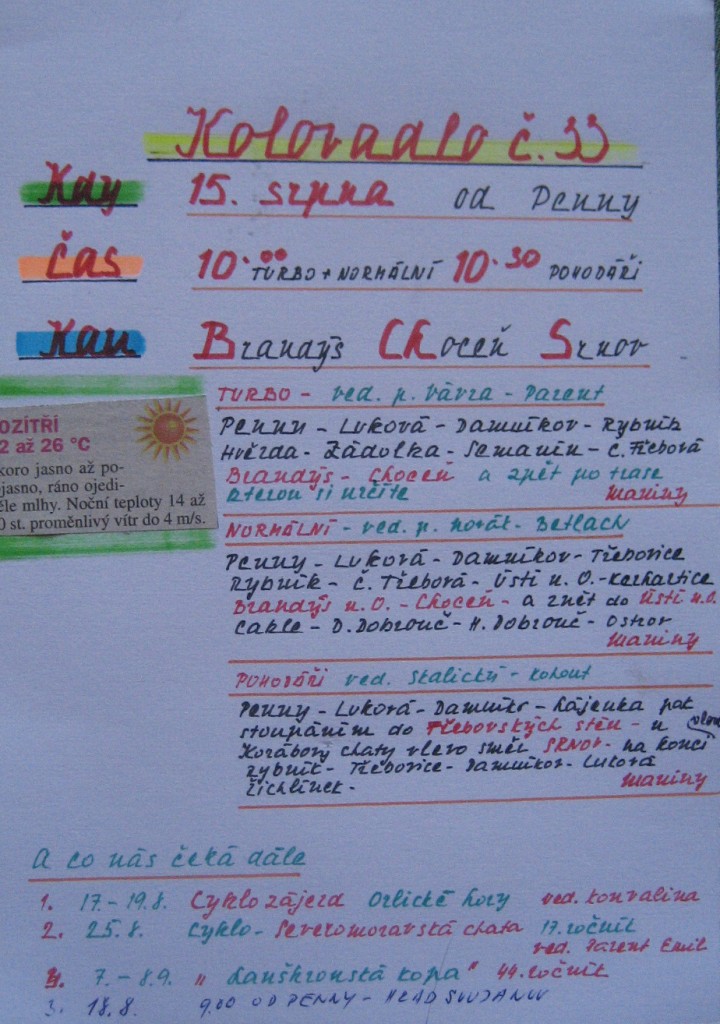 Kolovadlo č. 33
Kdy 15. srpna od Penny
Čas 10.00 TURBO + NORMÁLNÍ 10.30 POHODÁŘI
Kam Brandýs CHoceň Srnov
TURBO - ved. p. Vávra - Parent
OZÍTŘÍ
2 až 26 °C
koro jasno až po-
jasno, ráno ojedi-
ěle mlhy. Noční teploty 14 až
0 st. proměnlivý vítr do 4 m/s.
Penny - Luková - Damníkov - Rybník
Hvězda - Zádolka - Semanín - Č. Třebová
Brandýs - Choceň a zpět po trase
kterou si určíte Maniny
NORMÁLNÍ - ved. p. Novák - Betlach
Penny - Luková - Damníkov - Třebovice
Rybník - Č. Třebová - Ústí n. O. - Kerhartice
Brandýs n. O. - Choceň - a zpět do Ústí n. O.
Cakle - D. Dobrouč - H. Dobrouč - Ostrov
Maniny
POHODÁŘI ved. Skalický - Kohout
Penny - Luková - Damníkov - hájenka pak
stoupáním do Třebovských stěn - u
Korábovy chaty vlevo směr SRNOV - na konci
Rybník - Třebovice - Damníkov - Luková
Žichlínek - Maniny
A co nás čeká dále
1. 17. - 19.8. Cyklozájezd Orlické hory ved. Konvalina
2. 25.8. Cyklo - Severomoravská chata 17. ročník
ved. Parent Emil
4. 7. - 8.9. "Lanškrounská kopa" 44. ročník
3. 18.8. 9.00 OD PENNY - HRAD SVOJANOV